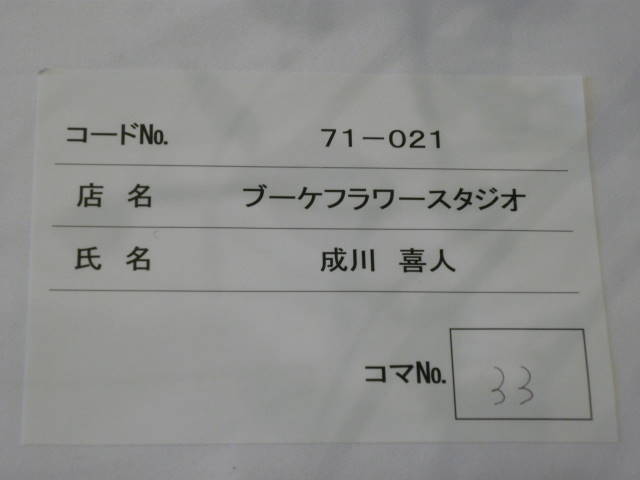 コードNo. 71-021
店 名 ブーケフラワースタジオ
氏 名 成川 喜人
コマNo. 33